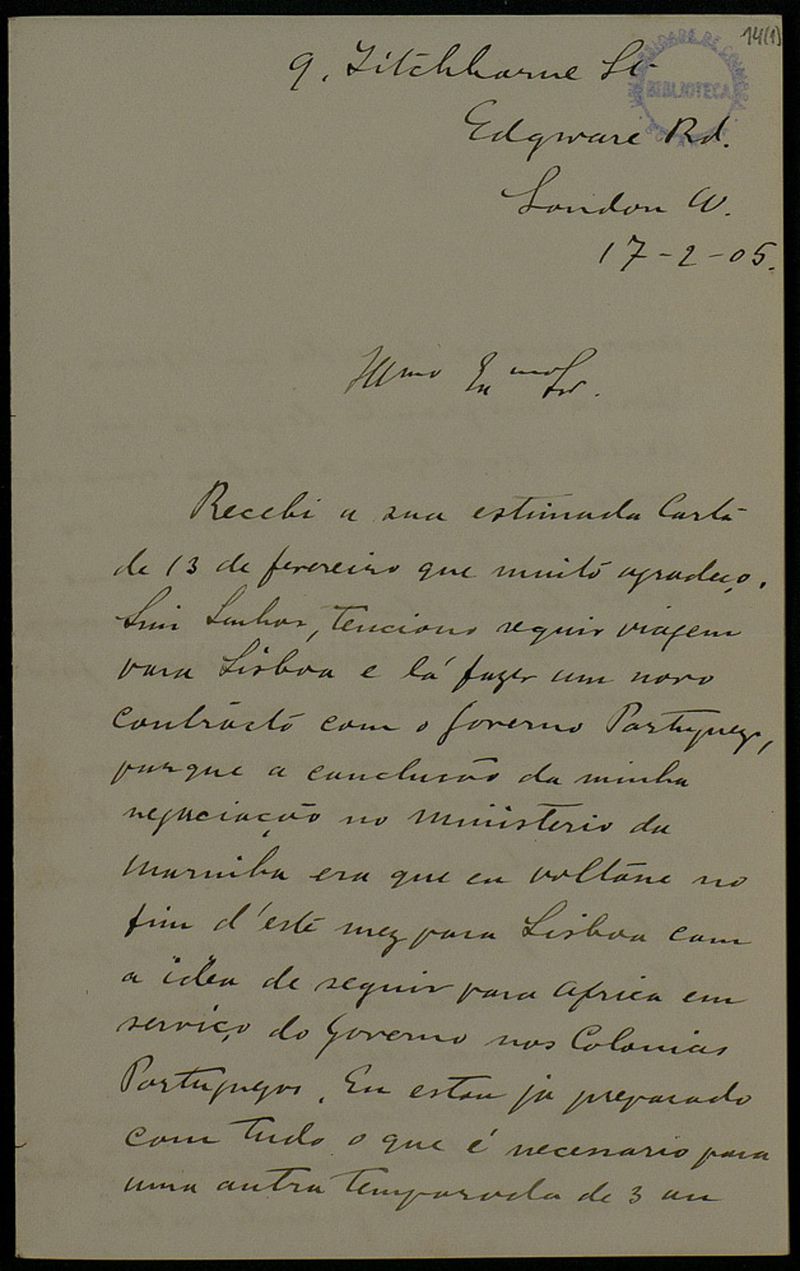 14(1)
BIBLIOTECA
9, Titchborne St
Edgware Rd.
London W.
17-2-05.
Illmo Exmo Sr.
Recebi a sua estimada Carta
de 13 de fevereiro que muito agradeço.
Sim Senhor, tenciono seguir viagem
para Lisboa e lá fazer um novo
contracto com o Governo Portuguez,
porque a conclução da minha
negociação no Ministerio da
Marinha era que eu voltáse no
fim d'este mez para Lisboa com
a idea de seguir para Africa em
serviço do Governo nas Colonias
Portuguezas. Eu estou ja preparado
com tudo o que é necessario para
uma outra temporada de 3 ou